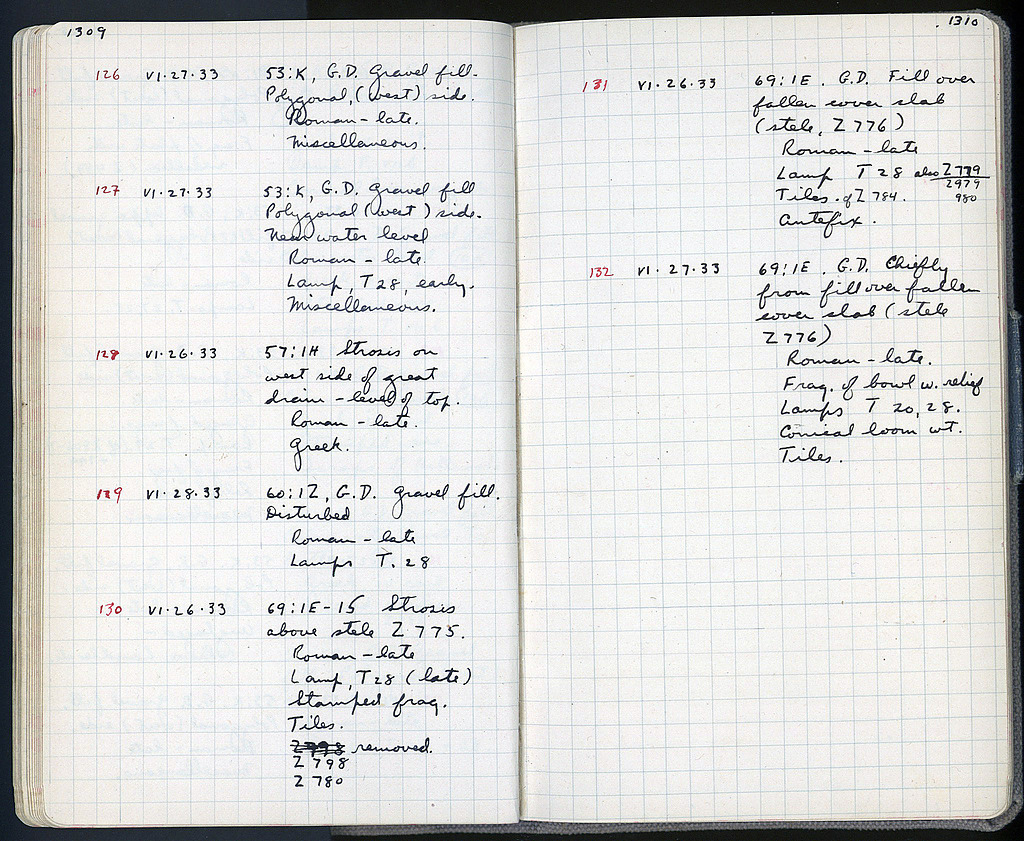 1309
126 VI·27·33 53:K, G.D. Gravel fill.
Polygonal, (west) side.
Roman - late.
Miscellaneous.
127 VI·27·33 53:K, G.D. Gravel fill
Polygonal (west) side.
Near water level
Roman - late.
Lamp, T 28, early.
Miscellaneous.
128 VI·26·33 57:1H Strosis on
west side of great
drain - level of top.
Roman - late.
Greek.
129 VI·28·33 60:1Z, G.D. gravel fill.
Disturbed
Roman - late
Lamps T. 28
130 VI·26·33 69:1E-15 Strosis
above stele Z 775.
Roman - late
Lamp, T 28 (late)
Stamped frag.
Tiles.
removed.
Z 798
Z 780
1310
131 VI·26·33 69:1E. G.D. Fill over
fallen cover slab
(stele, Z 776)
Roman - late
Lamp T 28 also Z 779
2979
Tiles. of Z 784. 980
Antefix.
132 VI·27·33 69:1E. G.D. Chiefly
from fill over fallen
cover slab (stele
Z 776)
Roman - late.
Frag. of bowl w. relief
Lamps T 20, 28.
Conical loom wt.
Tiles.